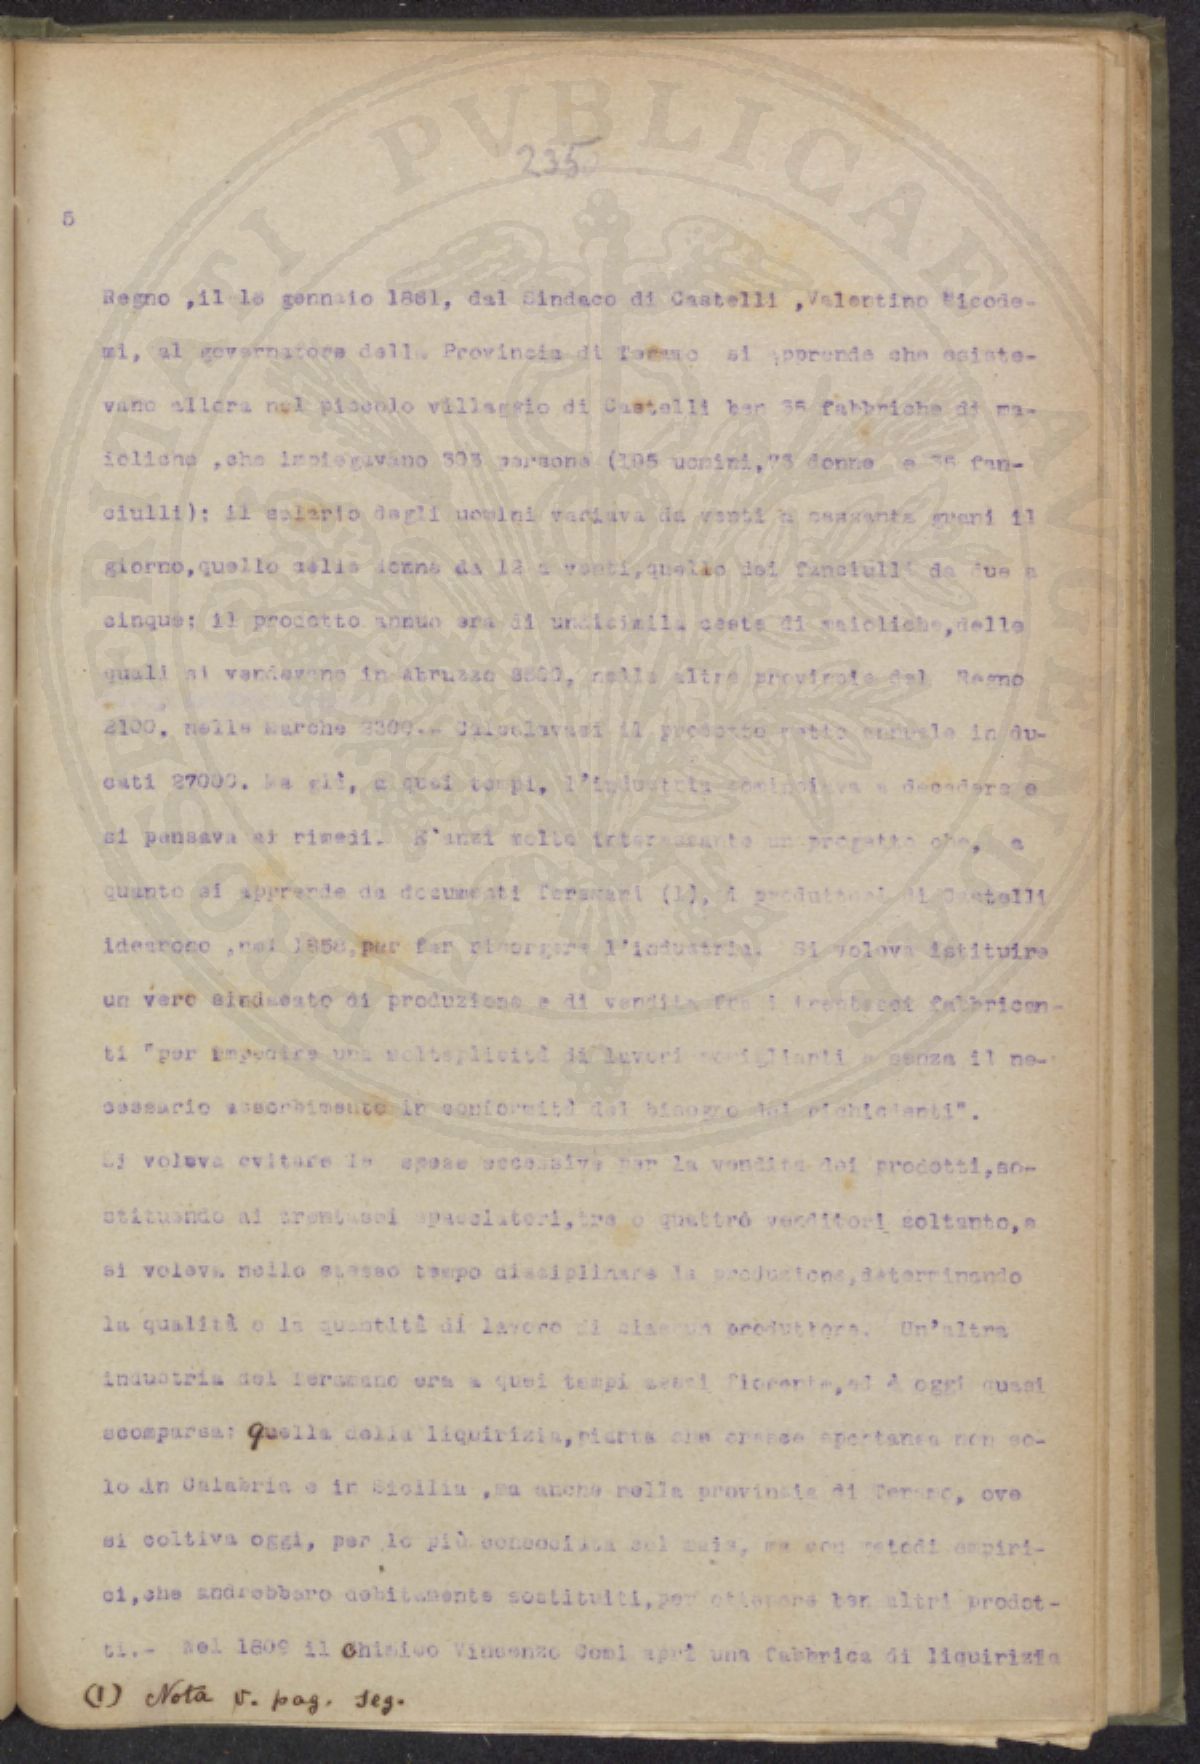 235
5
Regno ,il 18 gennaio 1861, dal Sindaco di Castelli ,Valentino Nicode-
mi, al governatore della Provincia di Teramo si apprende che esiste-
vano allora nel piccolo villaggio di Castelli ben 35 fabbriche di ma-
ioliche ,che impiegavano 303 persone (195 uomini,73 donne e 35 fan-
ciulli): il salario degli uomini variava da venti a sessanta grani il
giorno,quello delle donne da 12 a venti,quello dei fanciulli da due a
cinque: il prodotto annuo era di undicimila ceste di maioliche,delle
quali si vendevano in Abruzzo nelle altre provincie del Regno
2100, nelle Marche Calcolavasi il prodotto netto annuale in du-
cati 27000. Ma già, a quei tempi, l'industria cominciava a decadere e
si pensava ai rimedi. E'anzi molto interessante un progetto che, a
quanto si apprende da documenti Teramani (1), i produttori di Castelli
idearono ,nel 1858,per far risorgere l'industria. Si voleva istituire
un vero sindacato di produzione e di vendita fra i trentasei fabbrican-
ti "per impedire una molteplicità di lavori somiglianti e senza il ne-
cessario assorbimento in conformità del bisogno dei richiedenti".
Si voleva evitare le spese eccessive per la vendita dei prodotti,so-
stituendo ai trentasei spacciatori,tre o quattro venditori soltanto,e
si voleva nello stesso tempo disciplinare la produzione,determinando
la qualità e la quantità di lavoro di ciascun produttore. Un'altra
industria del Teramano era a quei tempi assai fiorente,ed è oggi quasi
scomparsa: quella della liquirizia,pianta che cresce spontanea non so-
lo in Calabria e in Sicilia ,ma anche nella provincia di Teramo, ove
si coltiva oggi, per lo più consociata col mais, ma con metodi empiri-
ci,che andrebbero debitamente sostituiti,per ottenere ben altri prodot-
ti.- Nel 1809 il chimico Vincenzo Comi aprì una fabbrica di liquirizia
(1) Nota v. pag. seg.